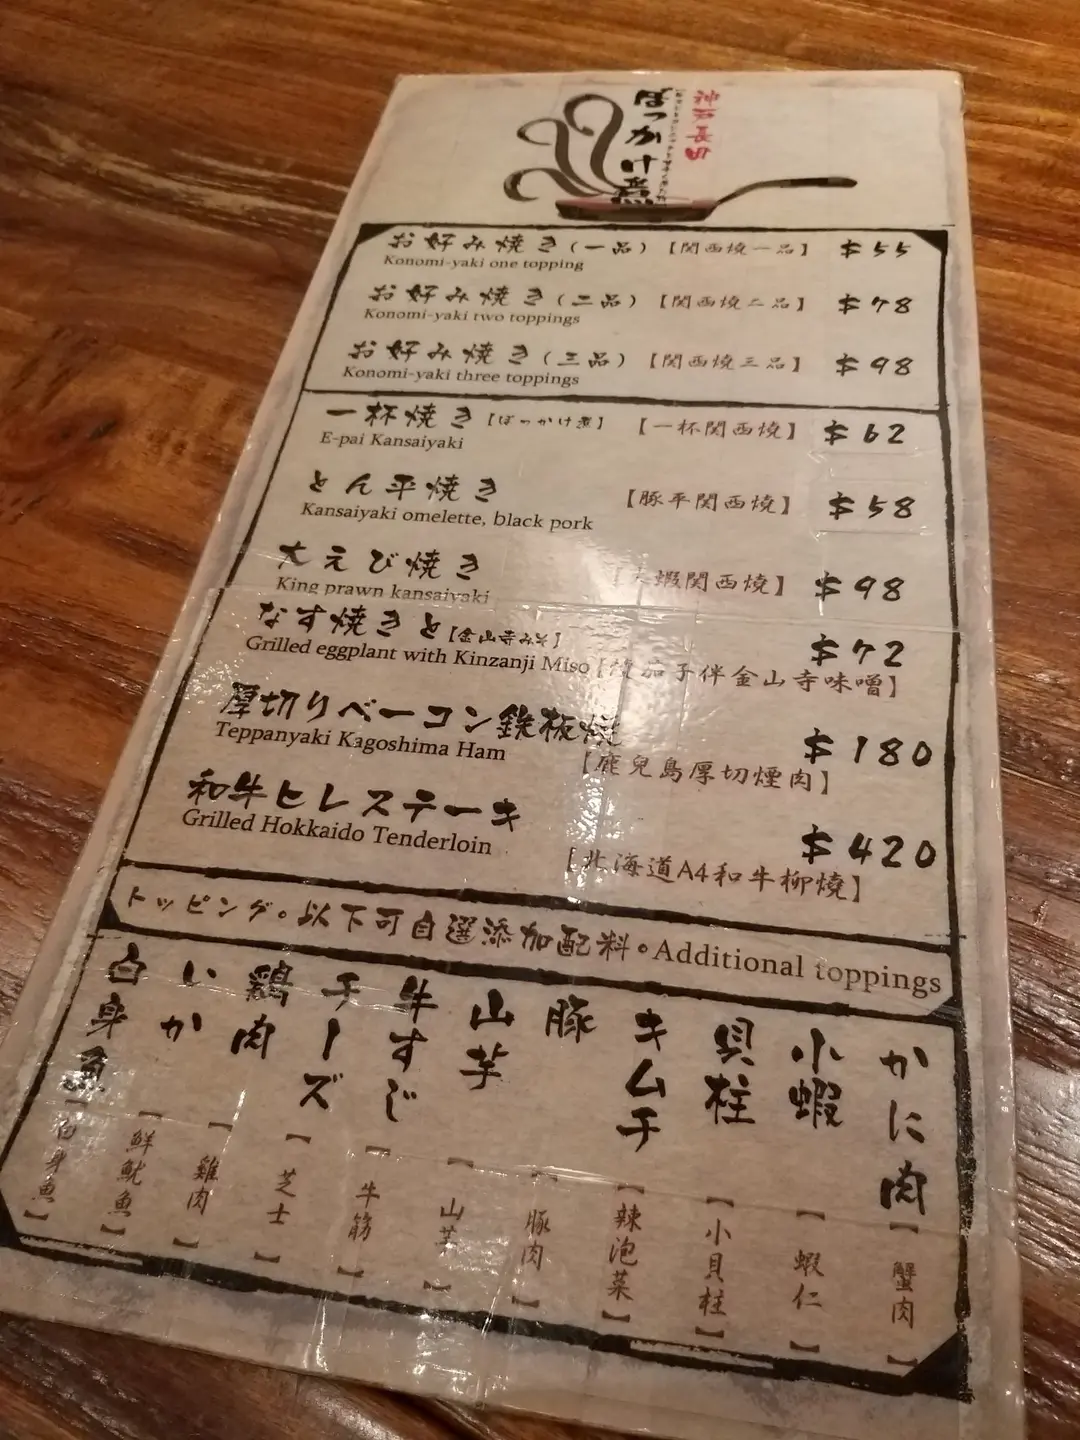 神戸長田
ぼっかけ煮
お好み焼き(一品)【関西焼一品】 $55
Konomi-yaki one topping
お好み焼き(二品)【関西焼二品】 $78
Konomi-yaki two toppings
お好み焼き(三品)【関西焼三品】 $98
Konomi-yaki three toppings
一杯焼き【ぼっかけ煮】 【一杯関西焼】 $62
E-pai Kansaiyaki
とん平焼き 【豚平関西焼】 $58
Kansaiyaki omelette, black pork
大えび焼き 蝦関西焼】 $98
King prawn kansaiyaki
なす焼きと【金山寺みそ】 $72
Grilled eggplant with Kinzanji Miso 茄子伴金山寺味噌】
厚切りベーコン鉄板焼 $180
Teppanyaki Kagoshima Ham 【鹿兒島厚切煙肉】
和牛ヒレステーキ $420
Grilled Hokkaido Tenderloin 【北海道A4和牛柳燒】
トッピング。以下可自選添加配料。Additional toppings
かに肉【蟹肉】
小蝦【蝦仁】
貝柱【小貝柱】
キムチ【辣泡菜】
豚【豚肉】
山芋【山芋】
牛すじ【牛筋】
チーズ【芝士】
鶏肉【雞肉】
いか【鮮魷魚】
白身魚【白身魚】